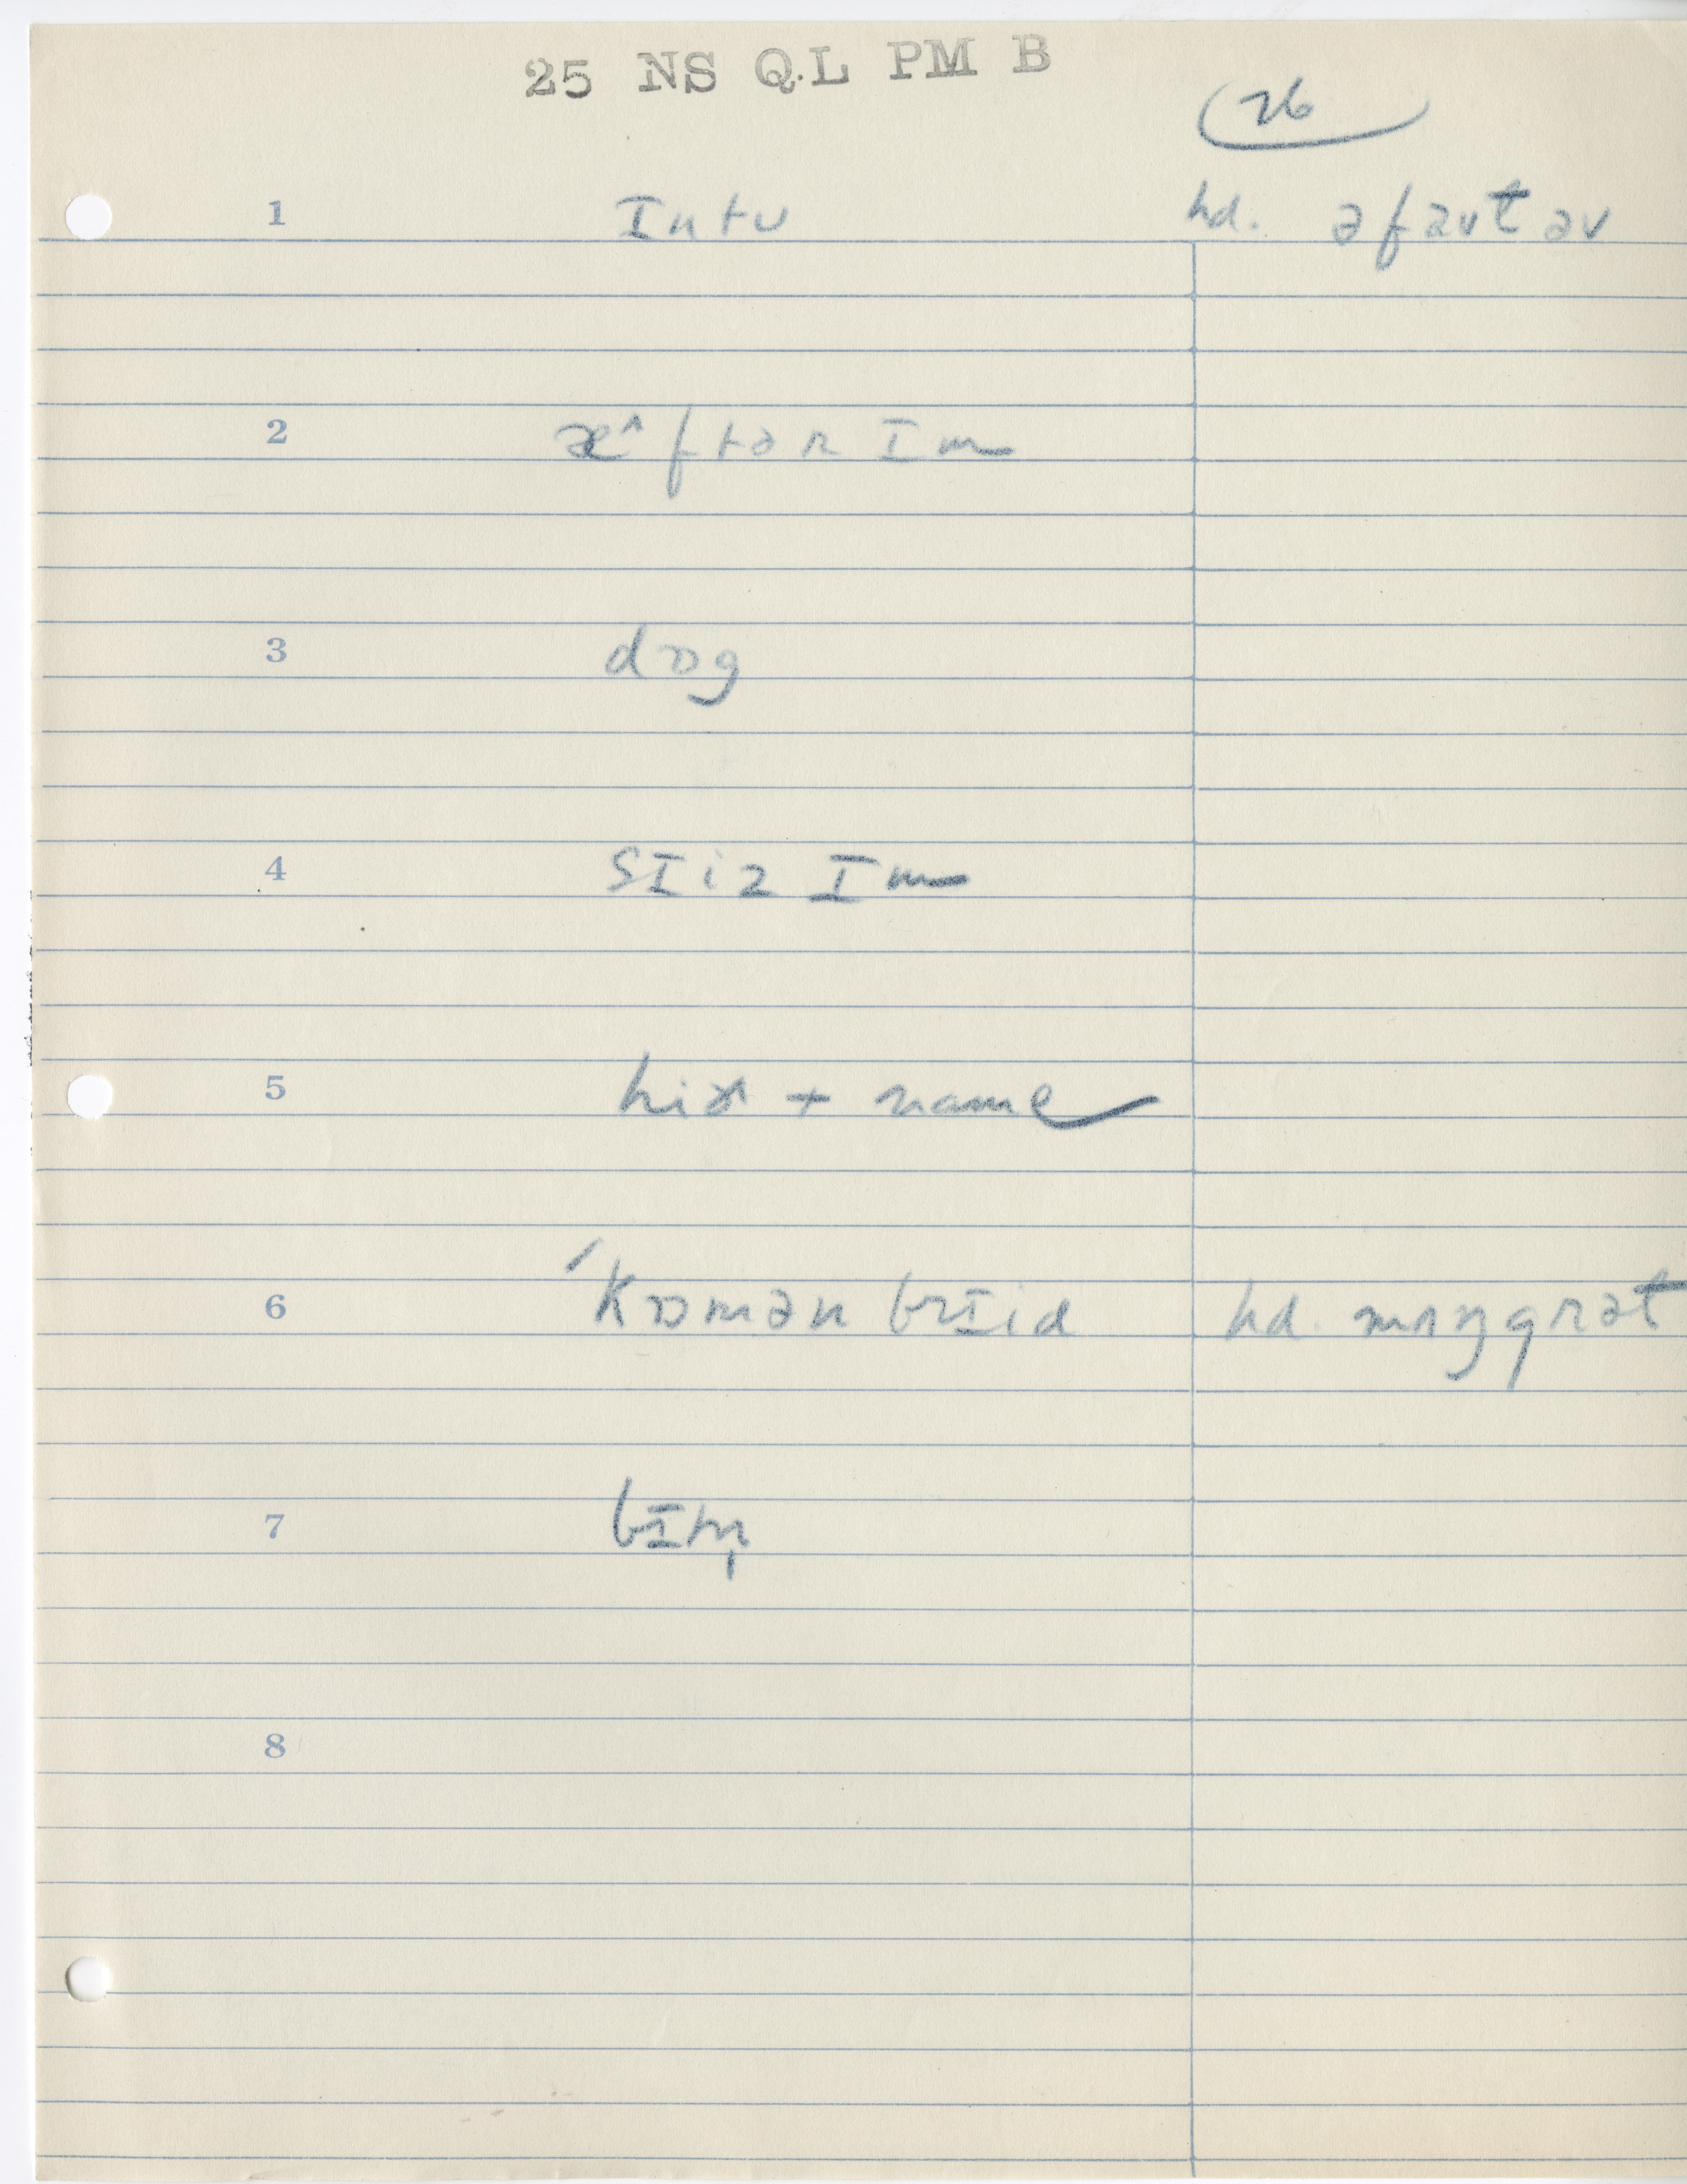 25 NS QL PM B
26
1 ɪntu hd. əfaʊt əv
2 æ^ftər ɪm
3 dɒg
4 sɪiz ɪm
5 hiər + name
6 ˈkɒmən brɪid hd. mʌŋgrət
7 bɪtʃ
8